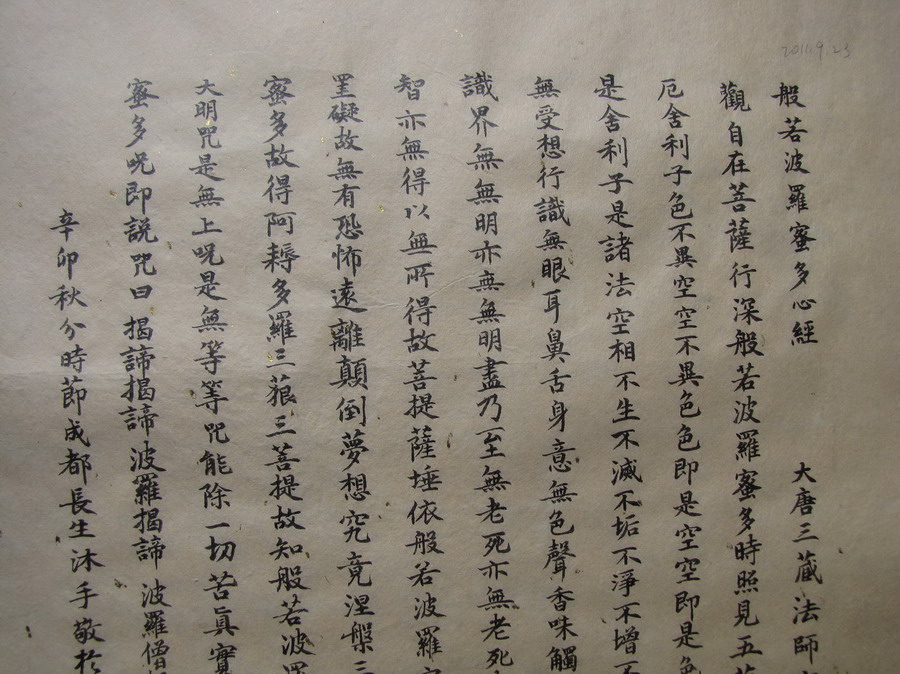 2011.9.23
般若波羅蜜多心經 大唐三蔵法師
觀自在菩薩行深般若波羅蜜多時照見五
厄舍利子色不異空空不異色色即是空空即是色
是舍利子是諸法空相不生不滅不垢不淨不增不
無受想行識無眼耳鼻舌身意無色聲香味觸
識界無無明亦無無明盡乃至無老死亦無老死
智亦無得以無所得故菩提薩埵依般若波羅
罣礙故無有恐怖遠離顛倒夢想究竟涅槃三
蜜多故得阿耨多羅三藐三菩提故知般若波羅
大明咒是無上呪是無等等咒能除一切苦真實
蜜多呪即説咒曰 揭諦揭諦 波羅揭諦 波羅僧
辛卯秋分時節成都長生沐手敬於